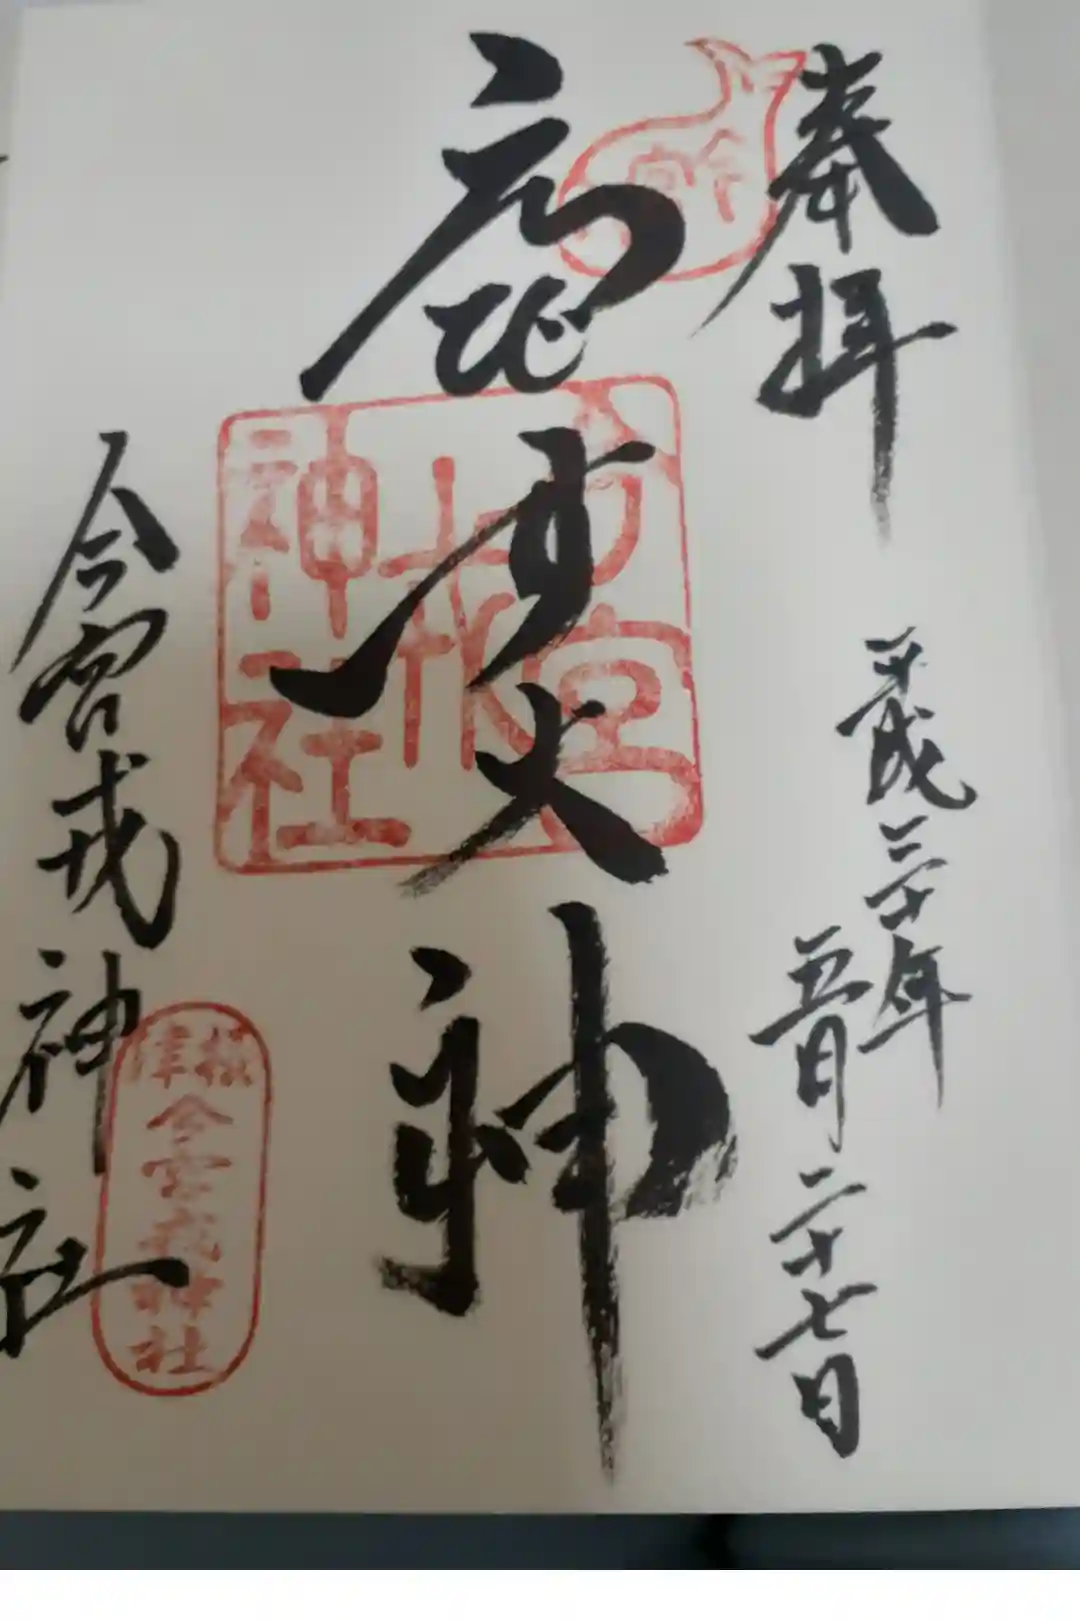 奉拝
平成三十年
五月二十七日
大神
今宮戎神社
今宮戎神社
津
今宮戎神社